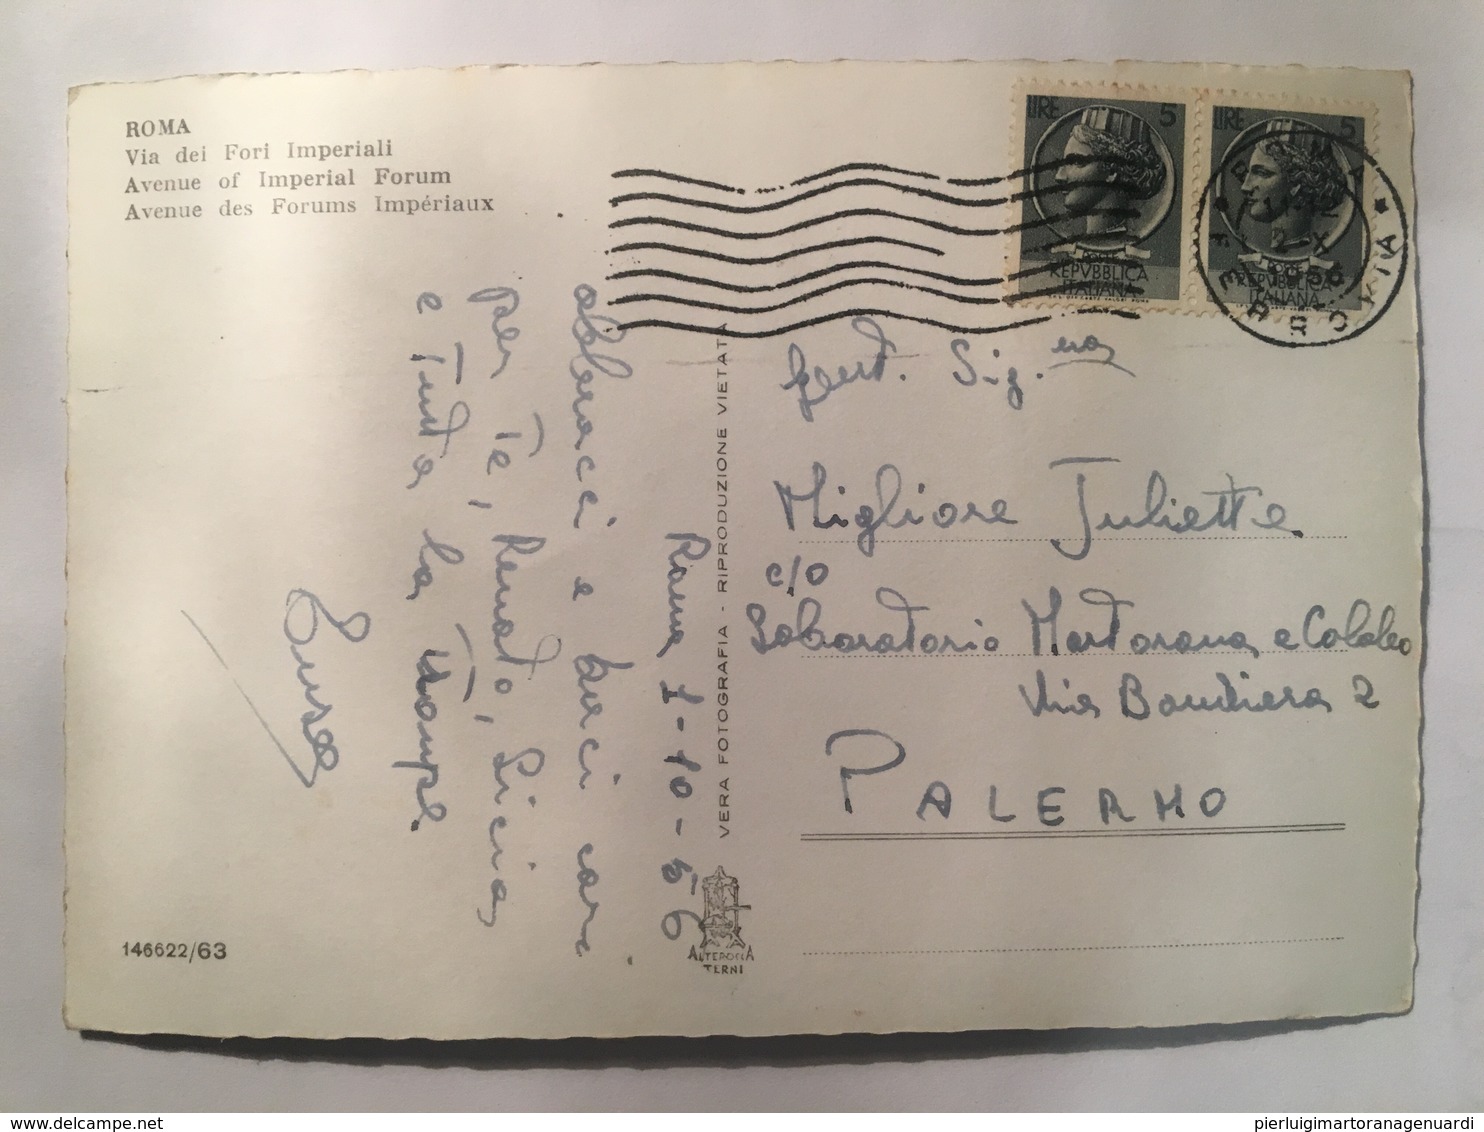 ROMA
Via dei Fori Imperiali
Avenue of Imperial Forum
Avenue des Forums Impériaux
LIRE 5
POSTE
REPVBBLICA
ITALIANA
LIRE 5
POSTE
REPVBBLICA
ITALIANA
ROMA
2-X
1956
FERROVIA
Roma 1-10-56
abbracci e baci care
per Te, Renato, Licia,
e Tutta la
VERA FOTOGRAFIA - RIPRODUZIONE VIETATA
Gent. Sig.na
Migliore Juliette
c/o
Laboratorio Martorana e Colaleo
Via Bandiera 2
PALERMO
146622/63
ALTEROCCA
TERNI
pierluigimartoranagenuardi